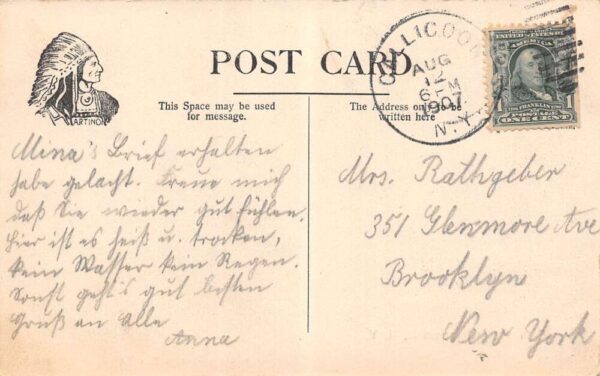 POST CARD.
ARTINO
This Space may be used
for message.
The Address only to be
written here
CALLICOON
AUG
12
6 PM
1907
N.Y.
UNITED STATES OF
AMERICA
FRANKLIN
1 1
POSTAGE
ONE CENT
Mina's Brief erhalten
habe gelacht. Freue mich
daß Sie wieder gut fühlen.
hier ist es heiß u. trocken,
kein Wasser kein Regen.
Sonst geht's gut besten
Gruß an Alle
Anna
Mrs. Rathgeber
351 Glenmore Ave
Brooklyn
New York